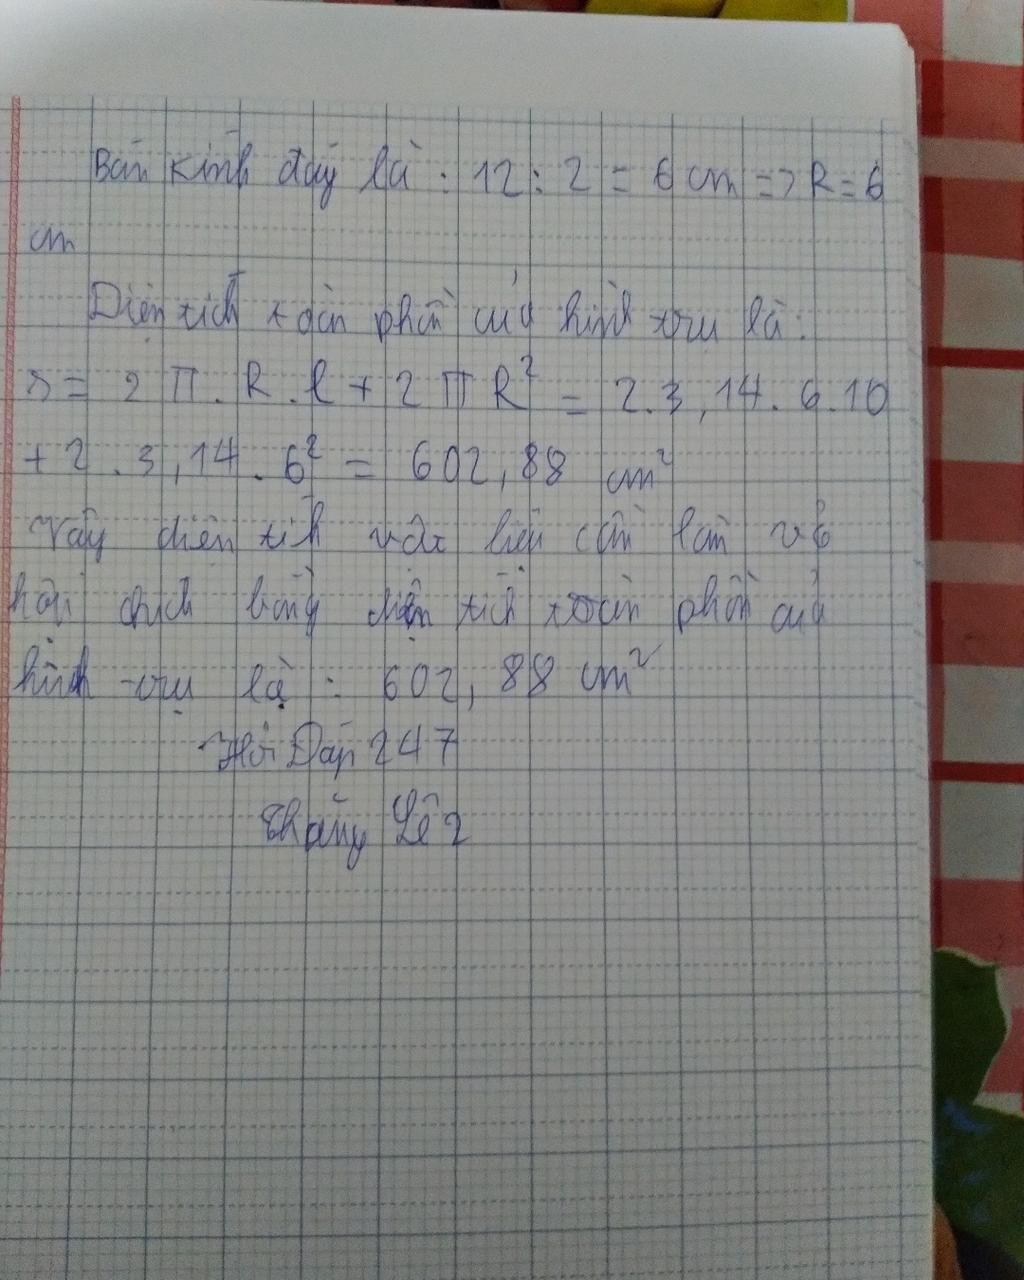 Bán kính đáy là : 12 : 2 = 6 cm => R = 6
cm
Diện tích toàn phần của hình trụ là:
S = 2 π . R . l + 2 π R² = 2.3,14.6.10
+ 2 . 3,14 . 6² = 602,88 cm²
Vậy diện tích vật liệu cần làm vỏ
hộp bằng diện tích toàn phần của
hình trụ là : 602,88 cm²
Hỏi Đáp 247